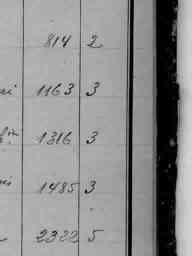 814 2
1163 3
1316 3
1485 3
2322 5